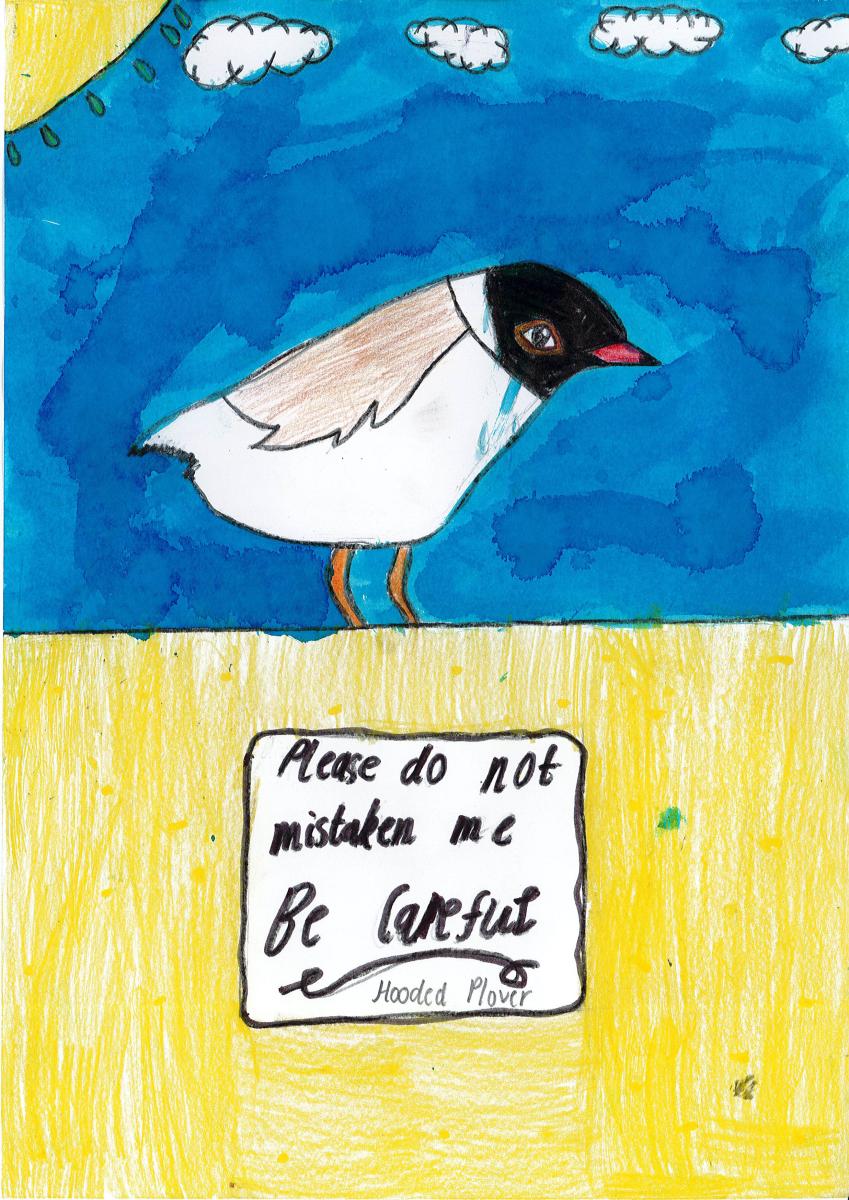 Please do not
mistaken me
Be Careful
Hooded Plover